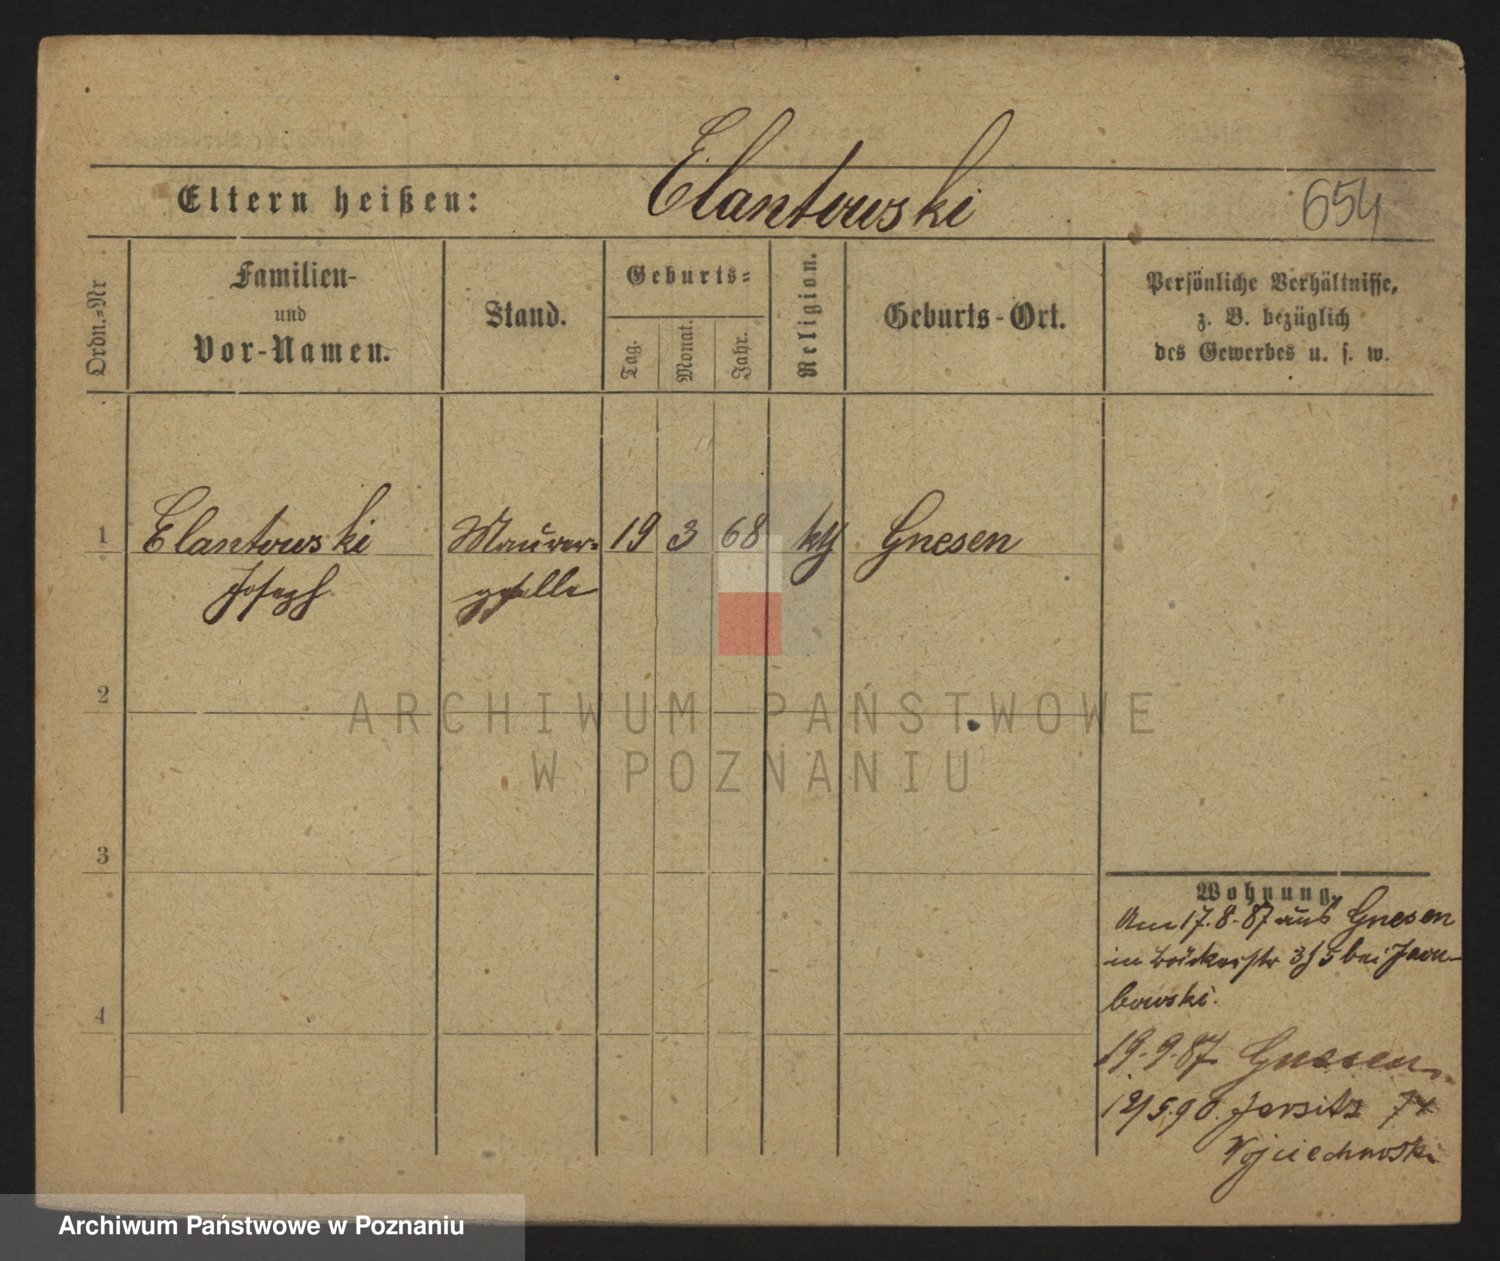 Elantowski
Eltern heißen:
654
Ordn.-Nr
Familien-
und
Vor-Namen.
Stand.
Geburts-
Tag.
Monat.
Jahr.
Religion.
Geburts-Ort.
Persönliche Verhältnisse,
z. B. bezüglich
des Gewerbes u. s. w.
1
Elantowski
Joseph
Maurer-
geselle
19
3
68
kth
Gnesen
2
ARCHIWUM PAŃSTWOWE
W POZNANIU
3
Wohnung.
Am 17.8.87 aus Gnesen
in 3/5 bei
bowski.
4
19.9.87 Gnesen
12/5.90. Jersitz 74
Wojciechowski
Archiwum Państwowe w Poznaniu